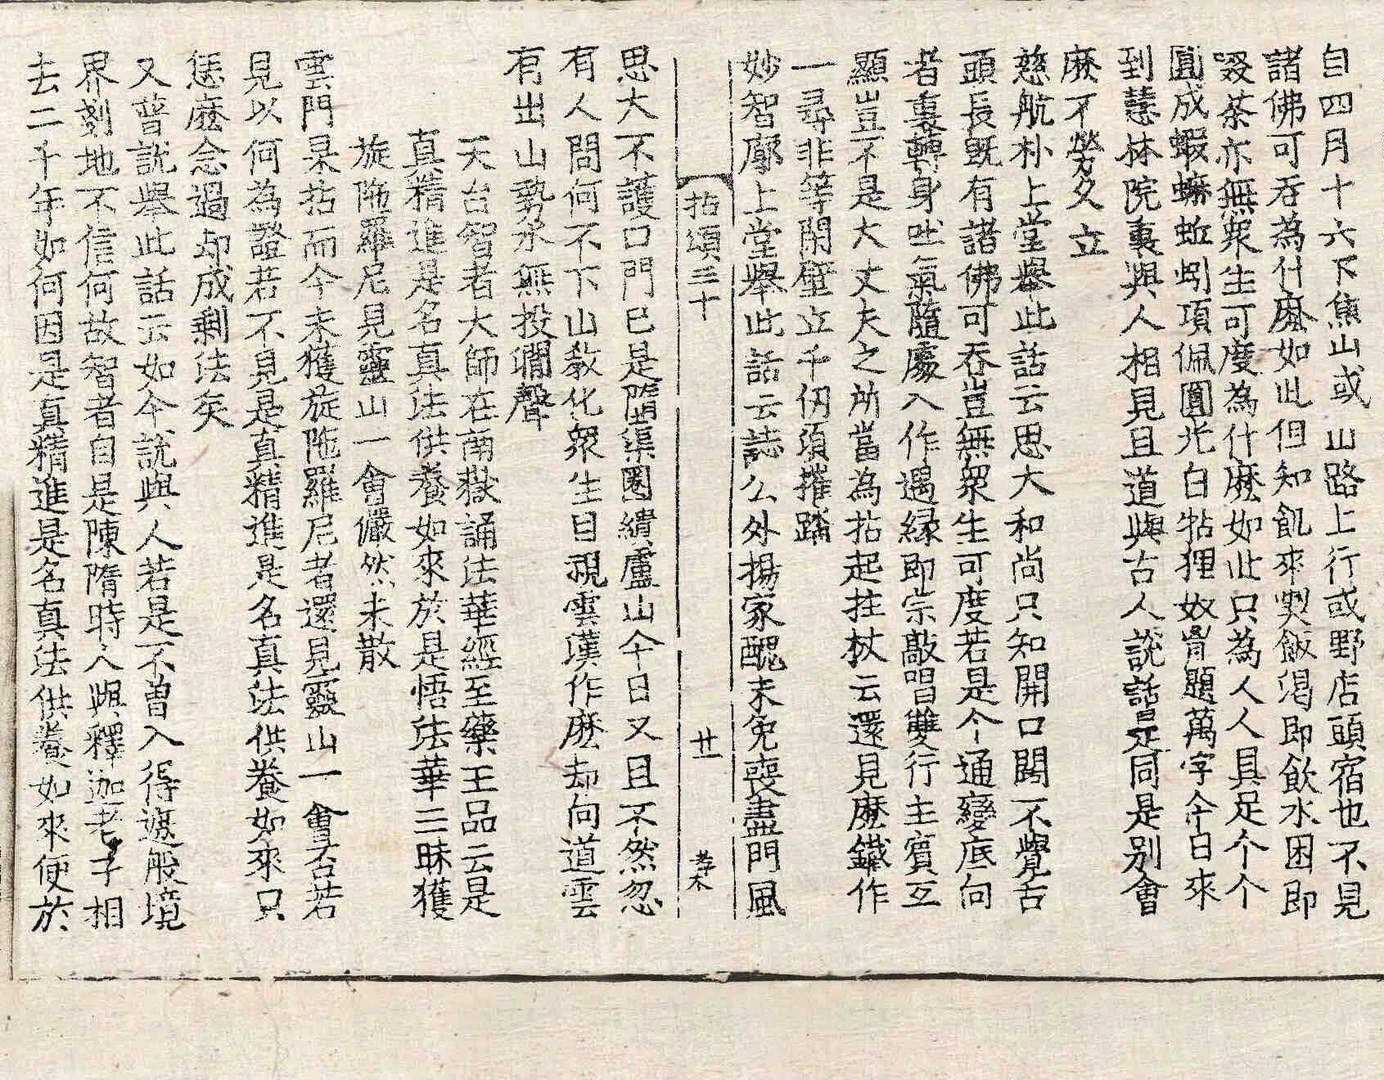 自四月十六下焦山或 山路上行或野店頭宿也不見
諸佛可吞為什麼如此但知飢來喫飯渴即飲水困即
啜茶亦無衆生可度為什麼如此只為人人具足个个
圓成蝦蟆蚯蚓項佩圓光白牯狸奴𮌎題萬字今日來
到慧林院裏與人相見且道與古人說話是同是別會
麽不勞久立
慈航朴上堂擧此話云思大和尚只知開口闊不覺舌
頭長旣有諸佛可吞豈無衆生可度若是今通變底向
者裏轉身吐氣隨處入作遇緣即宗敲唱雙行主賓互
顯豈不是大丈夫之所當為拈起拄杖云還見麽鐵作
一尋非等閑壁立千仞須摧踏
妙智廓上堂擧此話云誌公外揚家醜未免喪盡門風
拈頌三十 廿一 孝木
思大不護口門已是墮渠圈繢盧山今日又且不然忽
有人問何不下山教化衆生目視雲漢作麽却向道雲
有出山勢水無投澗聲
天台智者大師在南嶽誦法華經至藥王品云是
真精進是名真法供養如來於是悟法華三昧獲
旋陁羅尼見靈山一會儼然未散
雲門杲拈而今未獲旋陁羅尼者還見靈山一會否若
見以何為證若不見是真精進是名真法供養如來只
恁麽念過却成剩法矣
又普說擧此話云如今說與人若是不曾入得這般境
界刻地不信何故智者自是陳隋時人與釋迦老子相
去二千年如何因是真精進是名真法供養如來便於